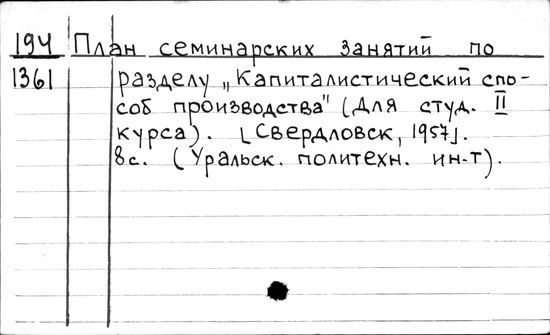 194 План семинарских занятий по
1361 разделу „Капиталистический спо-
соб производства" (Для студ. II
курса). [Свердловск, 1957].
8с. (Уральск. политехн. ин-т).